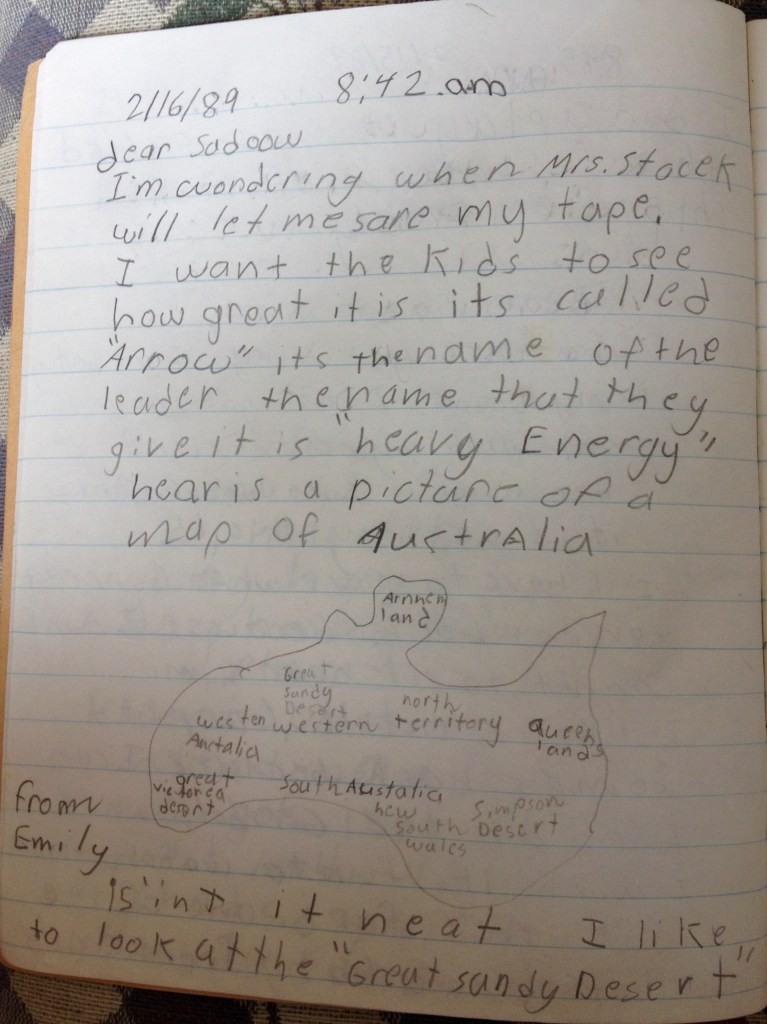 2/16/89 8:42.am
dear Sadoow
I'm wondering when Mrs. Stocek
will let me sare my tape.
I want the kids to see
how great it is its called
"Arrow" its the name of the
leader the name that they
give it is "heavy Energy"
hear is a picture of a
map of Australia
Arnhem
land
Great
sandy
Desert
north
territory
westen western
Queen
lands
Austalia
great
victorea
desert
South Austalia
new
south
wales
Simpson
Desert
from
Emily
is'int it neat I like
to look at the "Great sandy Desert"